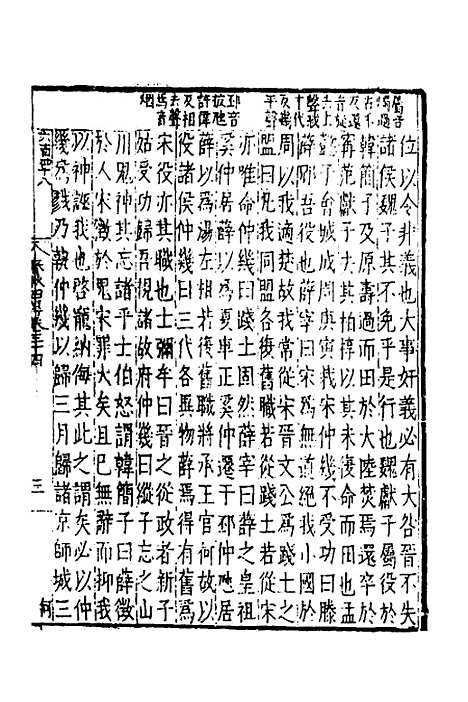 屬音
燭過
古禾
反還
音旋
去上
聲栽
才代
反幾
平聲
邳音
披虺
許偉
反相
去聲
焉音
烟
位以令非義也大事奸義必有大咎晉不失
諸侯魏子其不免乎是行也魏獻子屬役於
韓簡子及原壽過而田於大陸焚焉還卒於
甯范獻子去其柏椁以其未復命而田也孟
懿子會城成周庚寅栽宋仲幾不受功曰滕
薛郳吾役也薛宰曰宋爲無道絕我小國於
周以我適楚故我常從宋晉文公爲踐土之
盟曰凡我同盟各復舊職若從踐土若從宋
亦唯命仲幾曰踐土固然薛宰曰薛之皇祖
奚仲居薛以爲夏車正奚仲遷于邳仲虺居
薛以爲湯左相若復舊職將承王官何故以
役諸侯仲幾曰三代各異物薛焉得有舊爲
宋役亦其職也士彌牟曰晉之從政者新子
姑受功歸吾視諸故府仲幾曰縱子忘之山
川鬼神其忘諸乎士伯怒謂韓簡子曰薛徵
於人宋徵於鬼宋罪大矣且已無辭而抑我
以神誣我也啓寵納侮其此之謂矣必以仲
幾爲戮乃執仲幾以歸三月歸諸京師城三
六百四十八
三